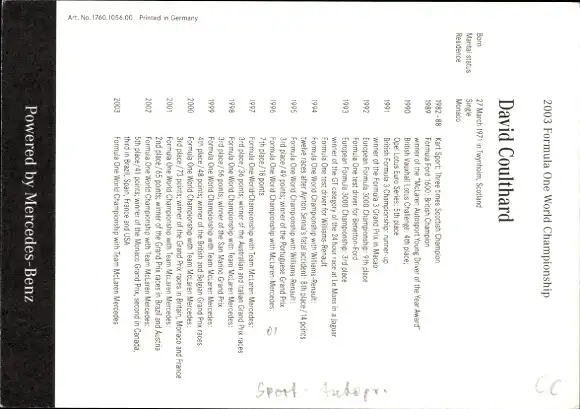 2003 Formula One World Championship
David Coulthard
Born 27 March 1971 in Twynholm, Scotland
Marital status Single
Residence Monaco
1982-88 Kart Sport: Three times Scottish Champion
1989 Formula Ford 1600: British Champion
winner of the "McLaren Autosport Young Driver of the Year Award"
1990 British Vauxhall Lotus Challenge: 4th place,
Opel Lotus Euro Series: 5th place
1991 British Formula 3 Championship: runner-up
winner of the Formula 3 Grand Prix in Macao
1992 European Formula 3000 Championship: 9th place
Formula One test driver for Benetton-Ford
1993 European Formula 3000 Championship: 3rd place
winner of the GT category of the 24-hour race at Le Mans in a Jaguar
Formula One test driver for Williams-Renault
1994 Formula One World Championship with Williams-Renault:
twelve races after Ayrton Senna's fatal accident: 8th place / 14 points
1995 Formula One World Championship with Williams-Renault:
3rd place / 49 points; winner of the Portuguese Grand Prix
1996 Formula One World Championship with McLaren Mercedes:
7th place / 18 points
1997 Formula One World Championship with Team McLaren Mercedes:
3rd place / 36 points; winner of the Australian and Italian Grand Prix races
1998 Formula One World Championship with Team McLaren Mercedes:
3rd place / 56 points; winner of the San Marino Grand Prix
1999 Formula One World Championship with Team McLaren Mercedes:
4th place / 48 points; winner of the British and Belgian Grand Prix races
2000 Formula One World Championship with Team McLaren Mercedes:
3rd place / 73 points; winner of the Grand Prix races in Britain, Monaco and France
2001 Formula One World Championship with Team McLaren Mercedes:
2nd place / 65 points; winner of the Grand Prix races in Brazil and Austria
2002 Formula One World Championship with Team McLaren Mercedes:
5th place / 41 points; winner of the Monaco Grand Prix, second in Canada,
third in Brazil, Spain, France and USA
2003 Formula One World Championship with Team McLaren Mercedes
Powered by Mercedes-Benz
Art. No. 1760.1056.00 Printed in Germany
Sport - Autogr.
CC